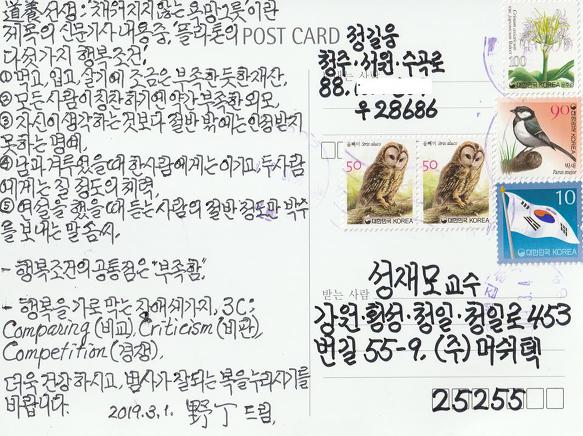 道養 선생: "채워지지 않는 욕망 그릇"이란
제목의 신문기사 내용중, 플라톤의
다섯가지 행복조건.
① 먹고, 입고, 살기에 조금은 부족한 듯한 재산,
② 모든 사람이 칭찬하기엔 약간 부족한 외모,
③ 자신이 생각하는 것보다 절반 밖에는 인정받지
못하는 명예.
④ 남과 겨루었을때 한사람에게는 이기고, 두사람
에게는 질 정도의 체력
⑤ 연설을 했을때 듣는 사람의 절반 정도만 박수
를 보내는 말솜씨.
- 행복조건의 공통점은 "부족함".
- 행복을 가로 막는 장애 세가지, 3C;
Comparing (비교), Criticism (비판),
Competition (경쟁).
더욱 건강하시고, 범사가 잘되는 복을 누리시기를
바랍니다. 2019.3.1. 野丁 드림.
POST CARD
정길웅
보내는 사람
청주·서원·수곡로
88.
우 28686
100
대한민국 KOREA
90
박새 Parus major
대한민국 KOREA
50
올빼미 Strix aluco
대한민국 KOREA
50
올빼미 Strix aluco
대한민국 KOREA
10
대한민국 KOREA
성재모 교수
받는 사람
강원·횡성·청일·청일로 453
번길 55-9. (주) 머쉬텍
25255